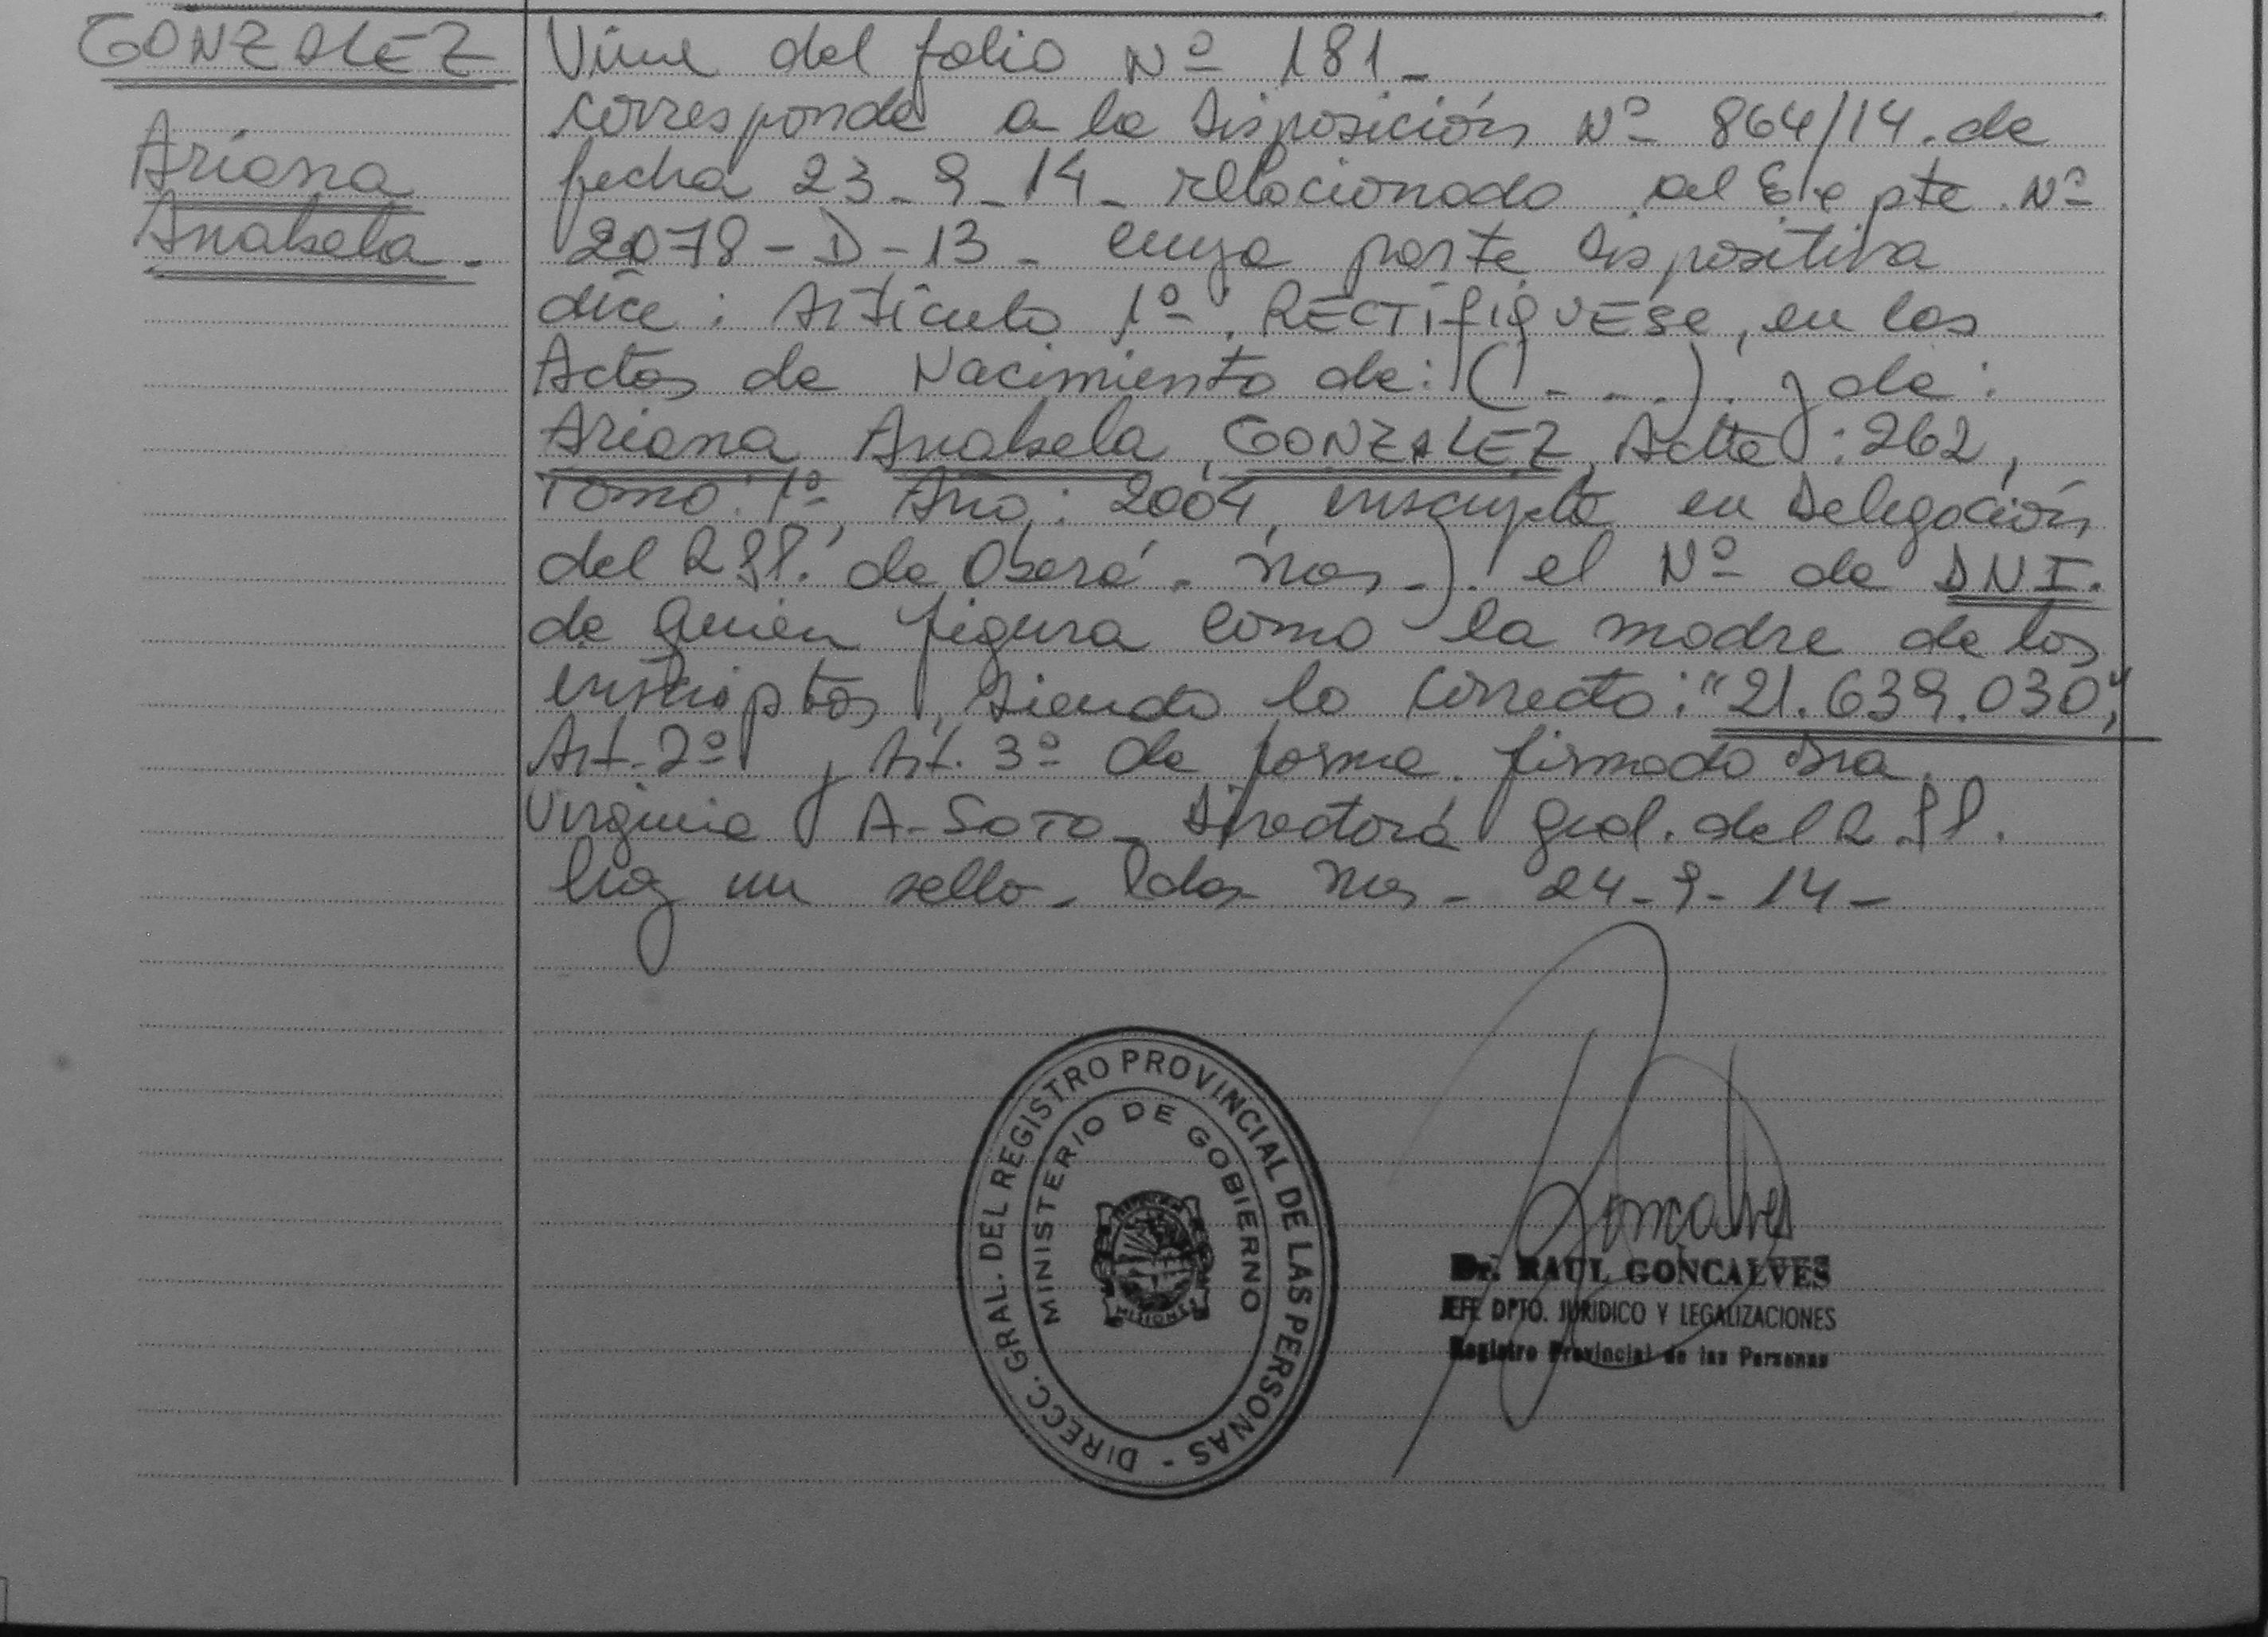 GONZALEZ
Ariana
Anabela.-
Viene del folio Nº 181-
corresponde a la Disposición Nº 864/14. de
fecha 23-9-14- relacionado al Expte. Nº
2078-D-13- cuya parte dispositiva
dice: Artículo 1º. RECTIFIQUESE, en las
Actas de Nacimiento de: (....). y de:
Ariana Anabela, GONZALEZ, Acta: 262,
Tomo: 1º, Año: 2004, inscripta en Delegación
del RPP. de Oberá. Mnes-). el Nº de DNI.
de quien figura como la madre de los
inscriptos, siendo lo correcto: "21.639.030",
Art. 2º y Art. 3º de forma. firmado Dra.
Virginia A- SOTO- Directora Gral. del RPP.
hay un sello- Pdas Mnes- 24-9-14-
DIRECC. GRAL. DEL REGISTRO PROVINCIAL DE LAS PERSONAS -
MINISTERIO DE GOBIERNO
MISIONES
Goncalves
Dr. RAUL GONCALVES
JEFE DPTO. JURIDICO Y LEGALIZACIONES
Registro Provincial de las Personas